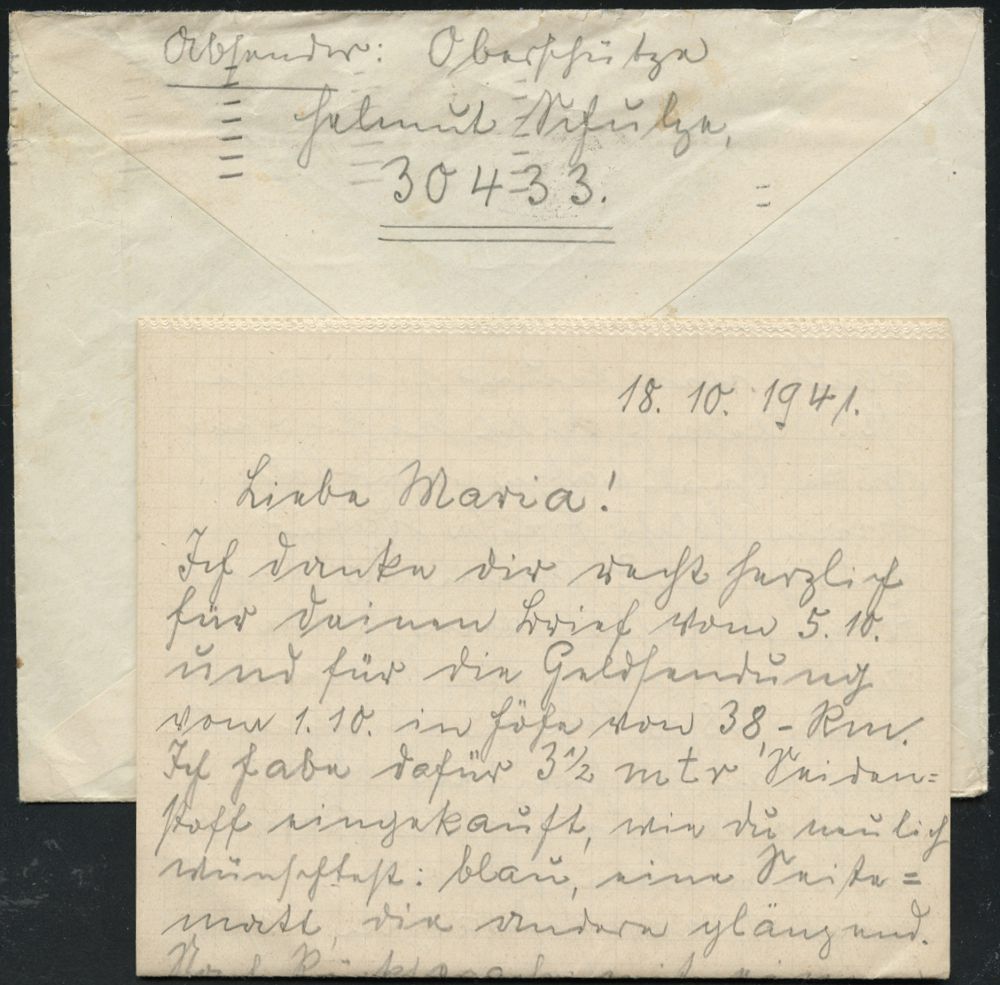 Absender: Oberschütze
Helmut Schulze,
30433.
18. 10. 1941.
Liebe Maria!
Ich danke dir recht herzlich
für deinen Brief vom 5. 10.
und für die Geldsendung
vom 1. 10. in Höhe von 38,- Rm.
Ich habe dafür 3 1/2 mtr Seiden=
stoff eingekauft, wie du neulich
wünschtest: blau, eine Seite=
matt, die andere glänzend.
Nach Rücksprache mit